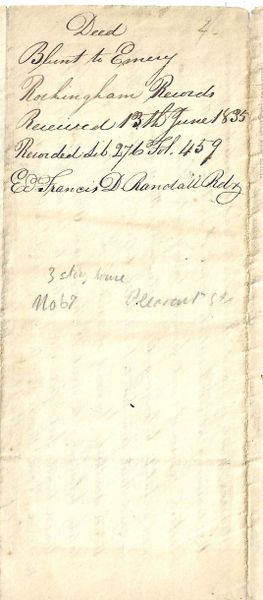 Deed 4.
Blunt to Emery
Rockingham Records
Received 13th June 1835
Recorded Lib. 276 Fol. 459
Ex Francis D. Randall Rdr
3 story house
No 67 Pleasant St.